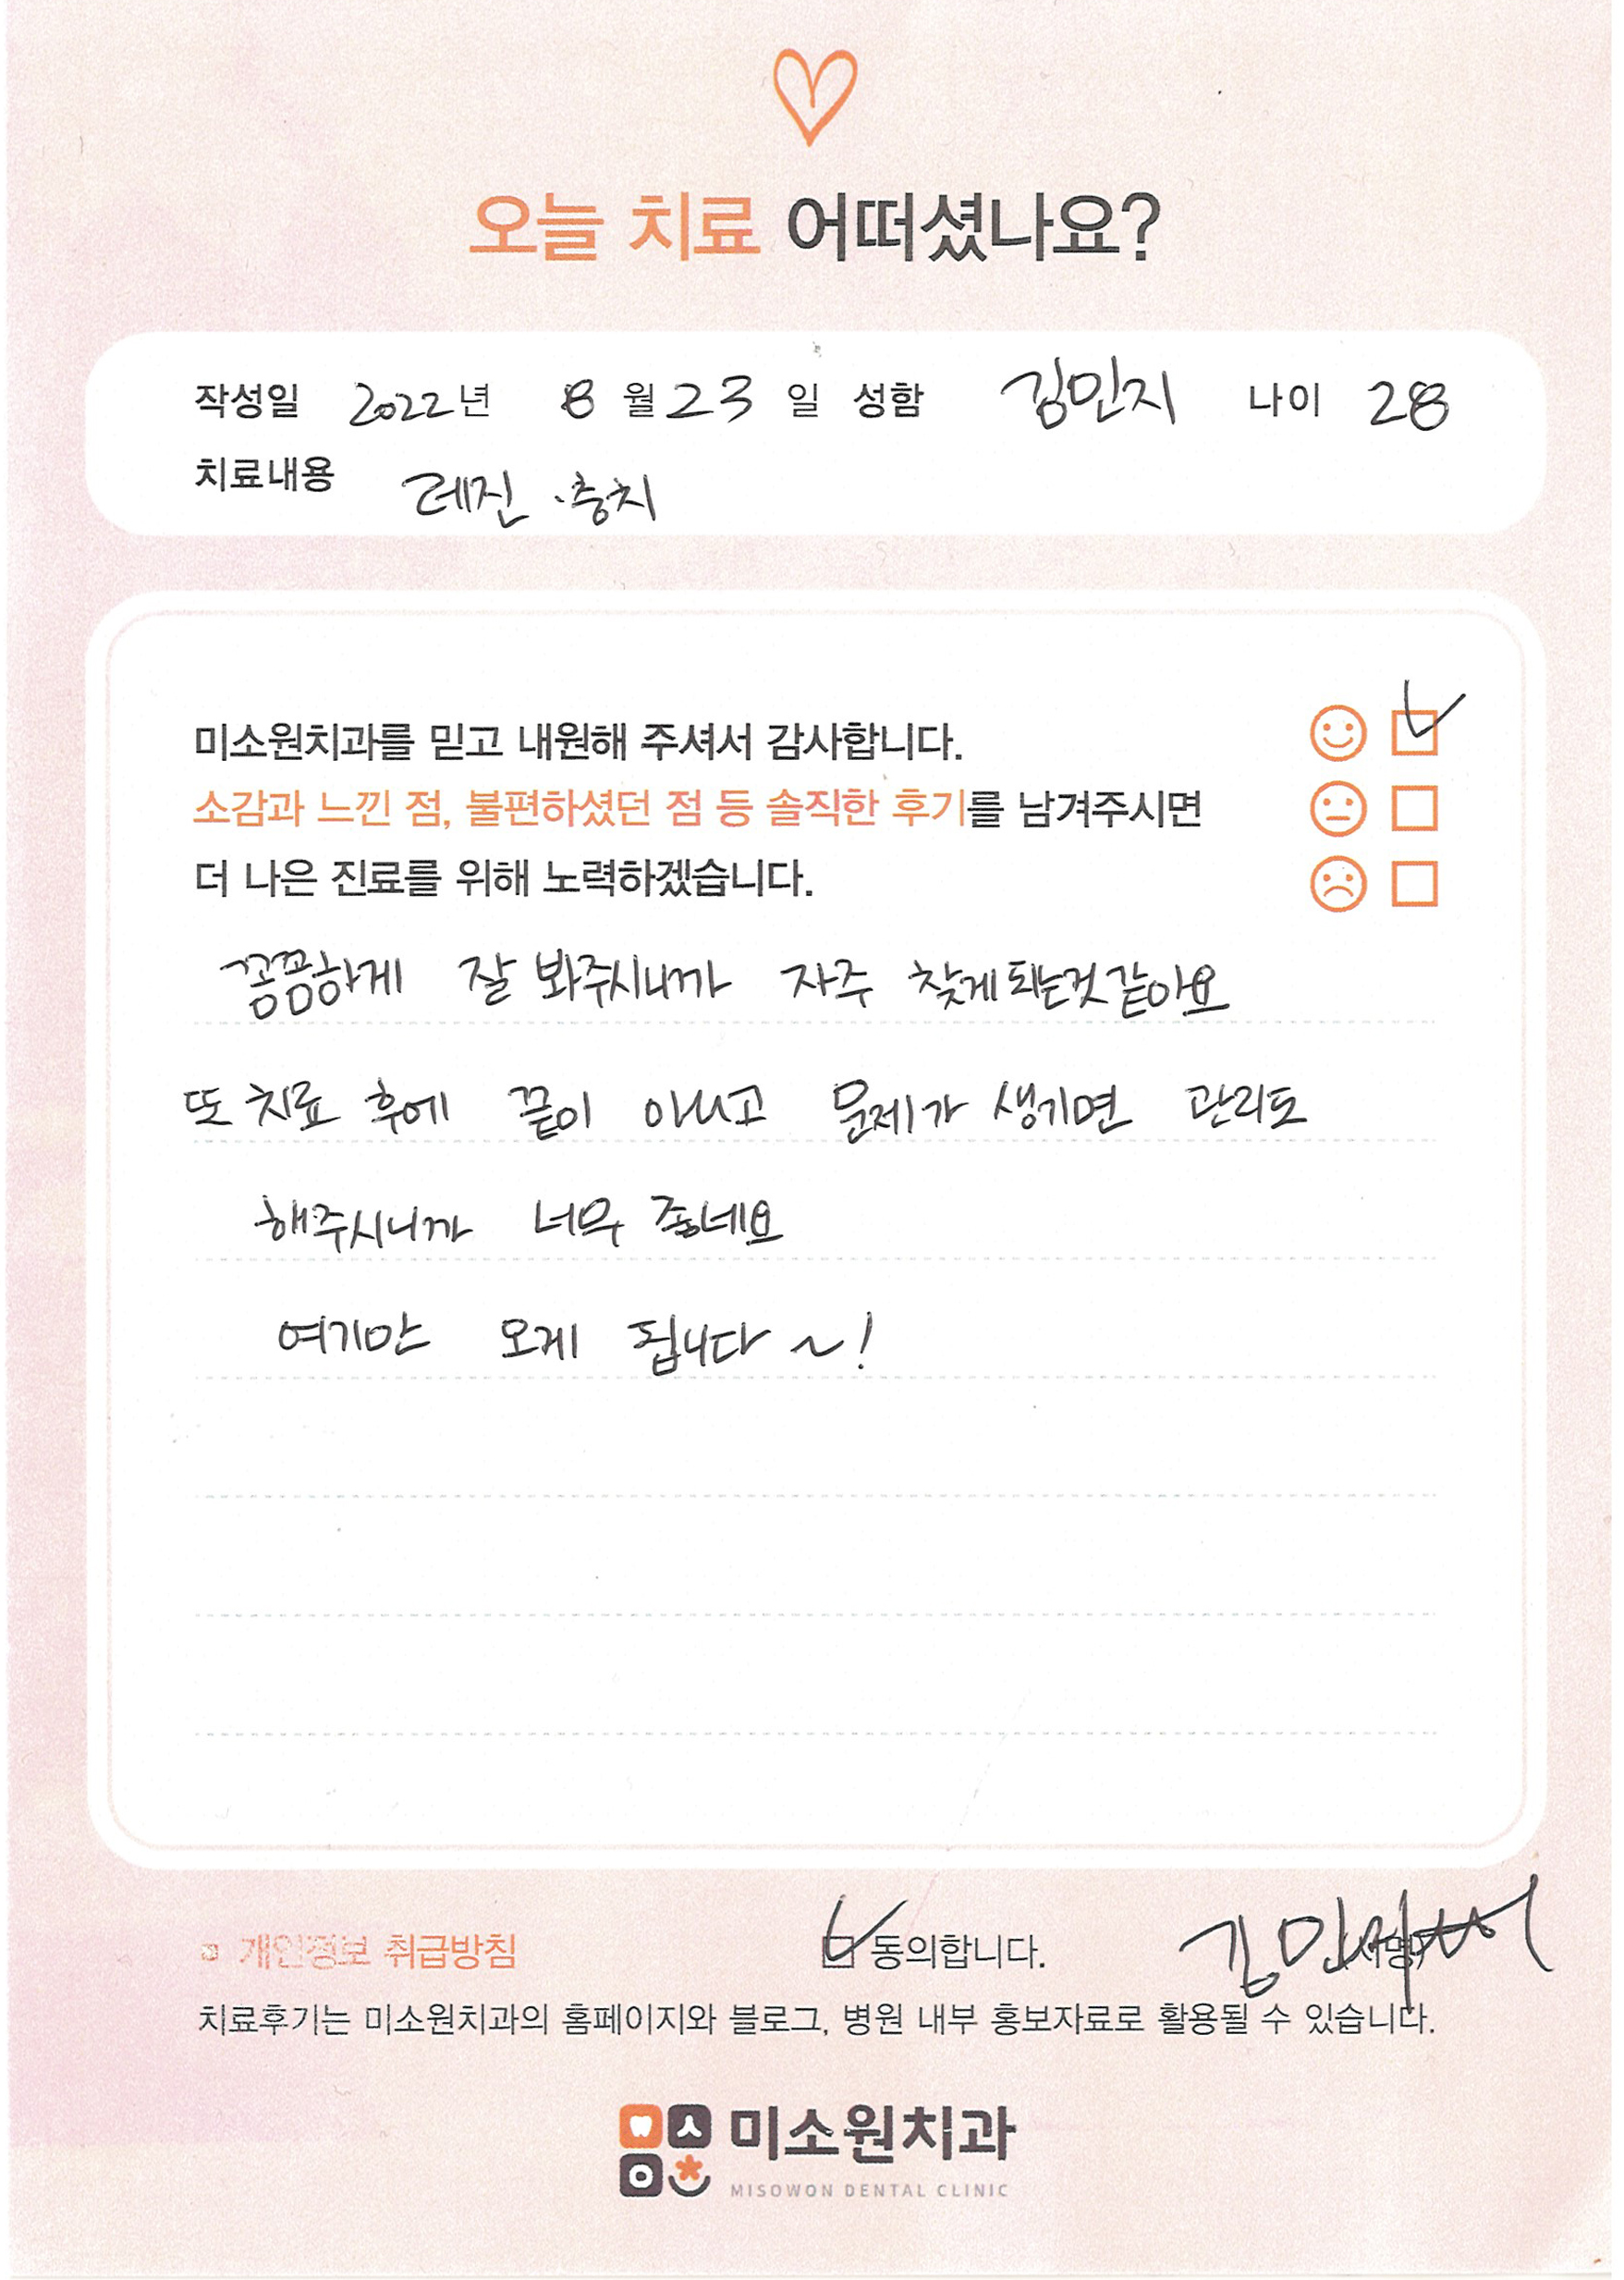 오늘 치료 어떠셨나요?
작성일 2022년 8월 23일 성함 김민지 나이 28
치료내용 레진·충치
미소원치과를 믿고 내원해 주셔서 감사합니다.
소감과 느낀 점, 불편하셨던 점 등 솔직한 후기를 남겨주시면
더 나은 진료를 위해 노력하겠습니다.
꼼꼼하게 잘 봐주시니까 자주 찾게 되는것 같아요
또 치료 후에 끝이 아니고 문제가 생기면 관리도
해주시니까 너무 좋네요
여기만 오게 됩니다 ~!
개인정보 취급방침 동의합니다. 김민지 (서명)
치료후기는 미소원치과의 홈페이지와 블로그, 병원 내부 홍보자료로 활용될 수 있습니다.
미소원치과
MISOWON DENTAL CLINIC